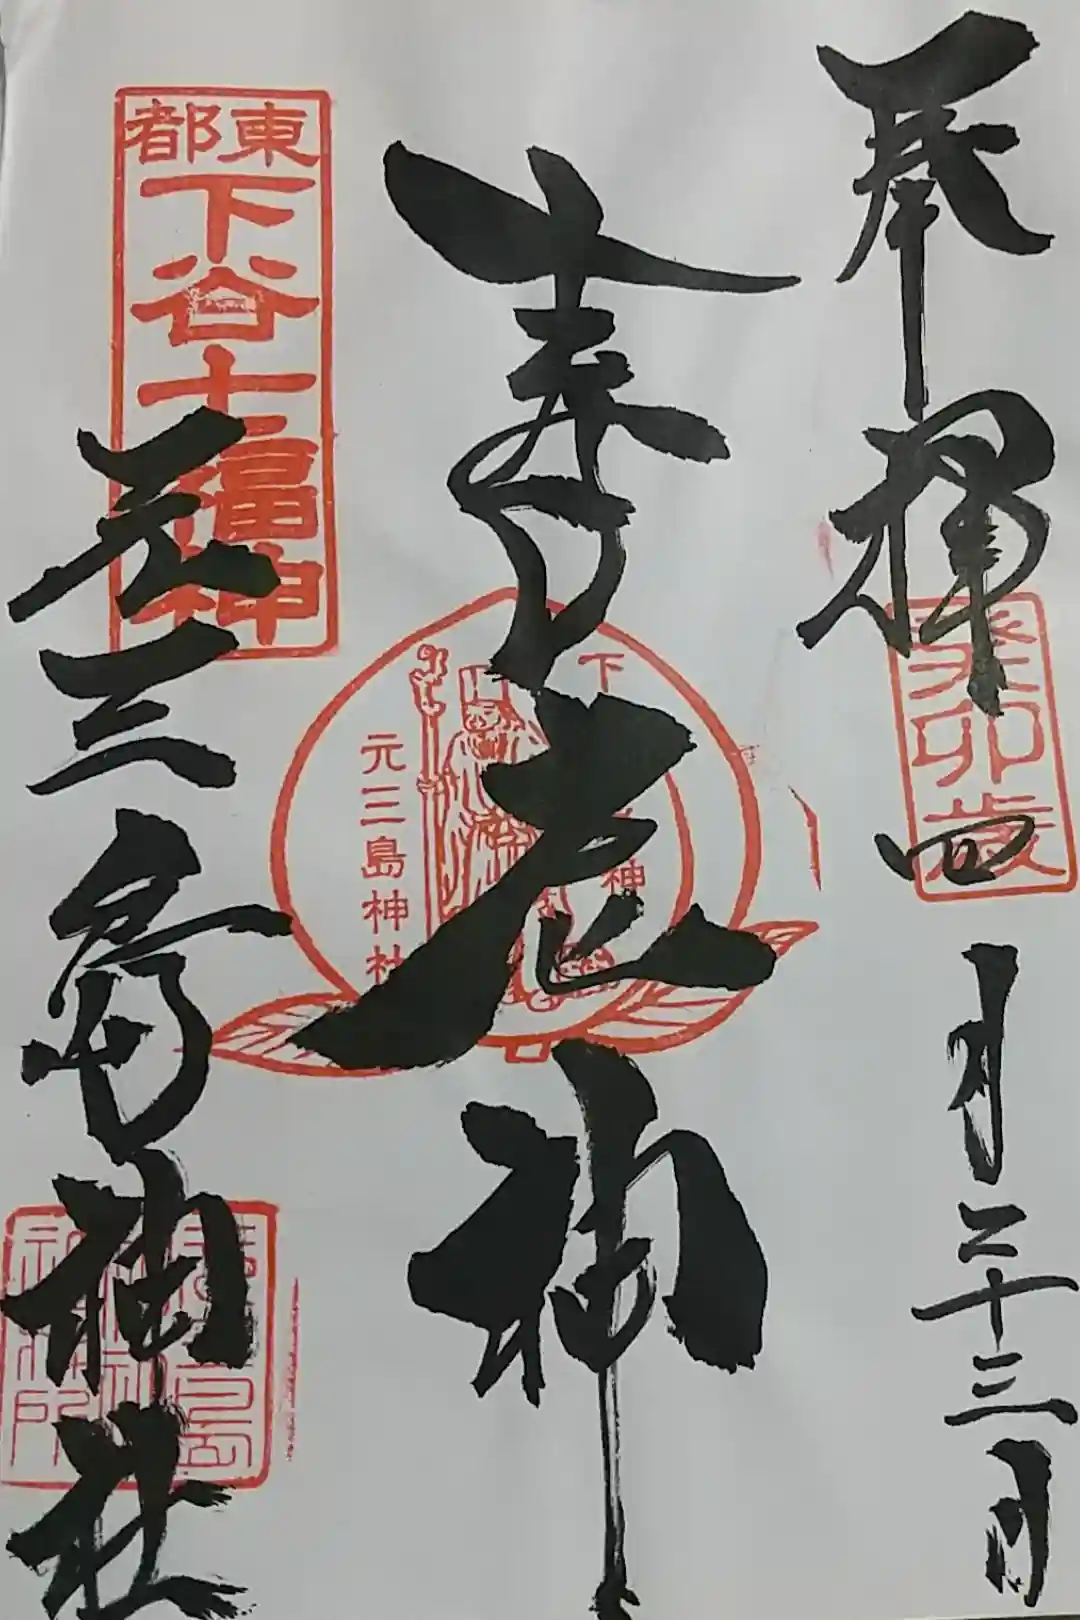 奉拝
癸卯歳
四月二十三日
寿老神
下
神
元三島神社
東都
下谷七福神
元三島神社